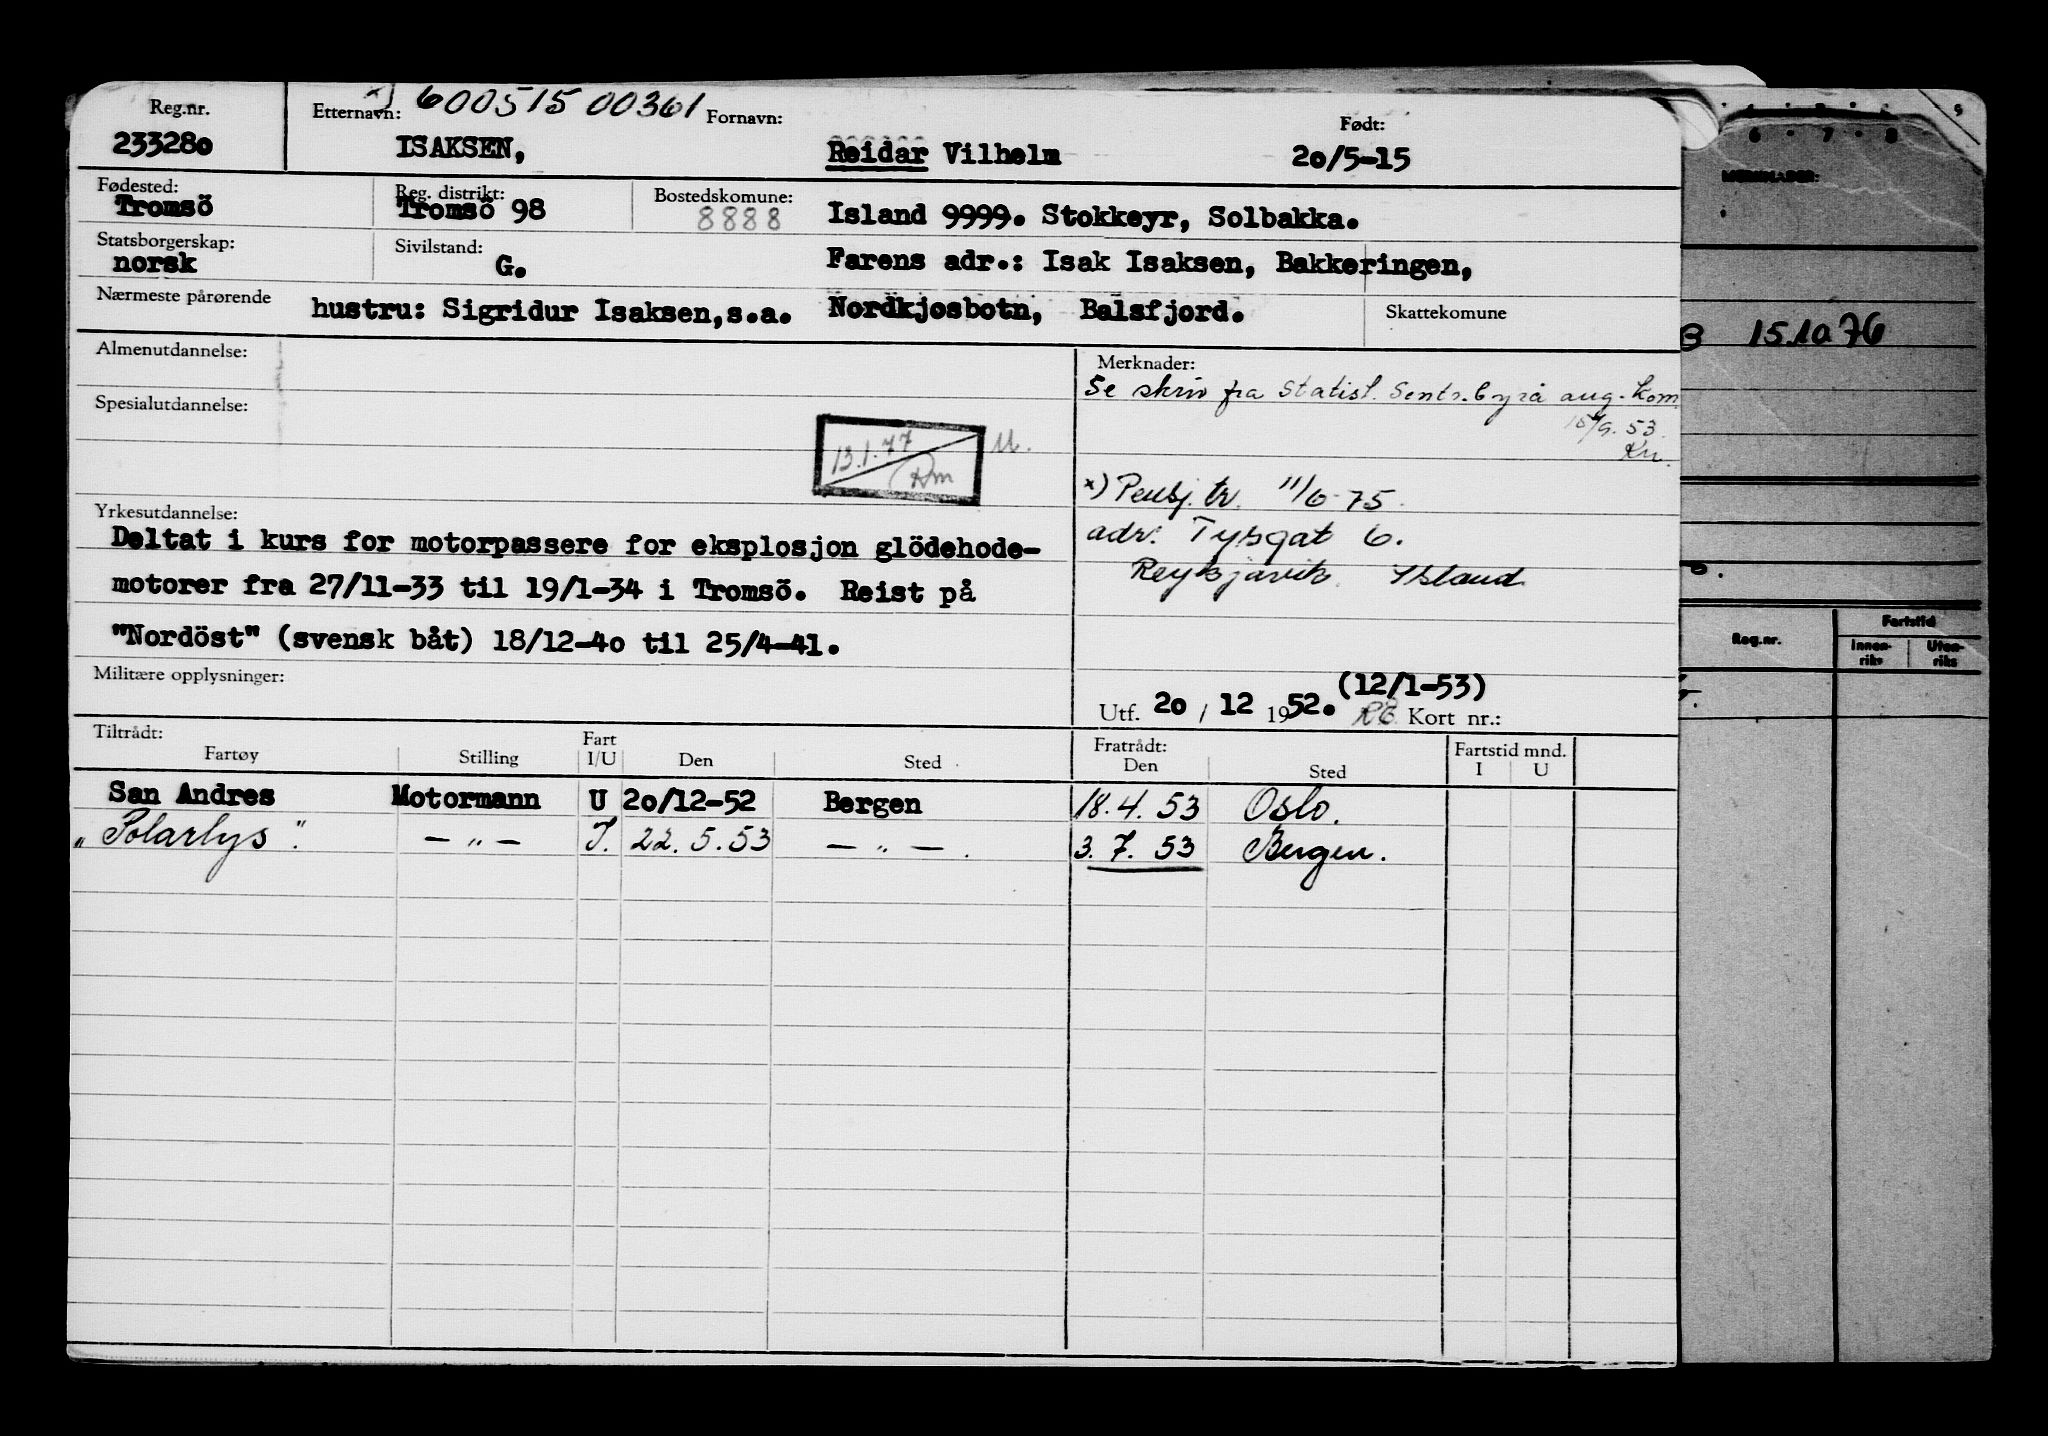 Reg.nr. Etternavn: x) 600515 00361 Fornavn: Født:
233280 ISAKSEN, Reidar Vilhelm 20/5-15
Fødested: Reg. distrikt: Bostedskomune:
Tromsö Tromsö 98 8888 Island 9999. Stokkeyr, Solbakka.
Statsborgerskap: Sivilstand:
norsk G. Farens adr.: Isak Isaksen, Bakkeringen,
Nærmeste pårørende hustru: Sigridur Isaksen,s.a. Nordkjosbotn, Balsfjord. Skattekomune
Almenutdannelse: Merknader:
Se skriv fra Statist. Sentr.byrå ang. kom
Spesialutdannelse: 15/9. 53
Kn.
13.1.77
x) Pensj. tr. 11/6-75.
Yrkesutdannelse: adr: Tysgat 6.
Deltat i kurs for motorpassere for eksplosjon glödehode-
Reykjavik Island
motorer fra 27/11-33 til 19/1-34 i Tromsö. Reist på
"Nordöst" (svensk båt) 18/12-40 til 25/4-41.
Militære opplysninger: (12/1-53)
Utf. 20 / 12 1952. Kort nr.:
Tiltrådt: Fart Fratrådt: Fartstid mnd.
Fartøy Stilling I/U Den Sted Den Sted I U
San Andres Motormann U 20/12-52 Bergen 18.4.53 Oslo.
"Polarlys". — " — I. 22.5.53 — " — . 3.7.53 Bergen.
6 . 7 . 8
MERKNADER:
15.10.76
Reg.nr. Fartstid
Innen-riks Uten-riks